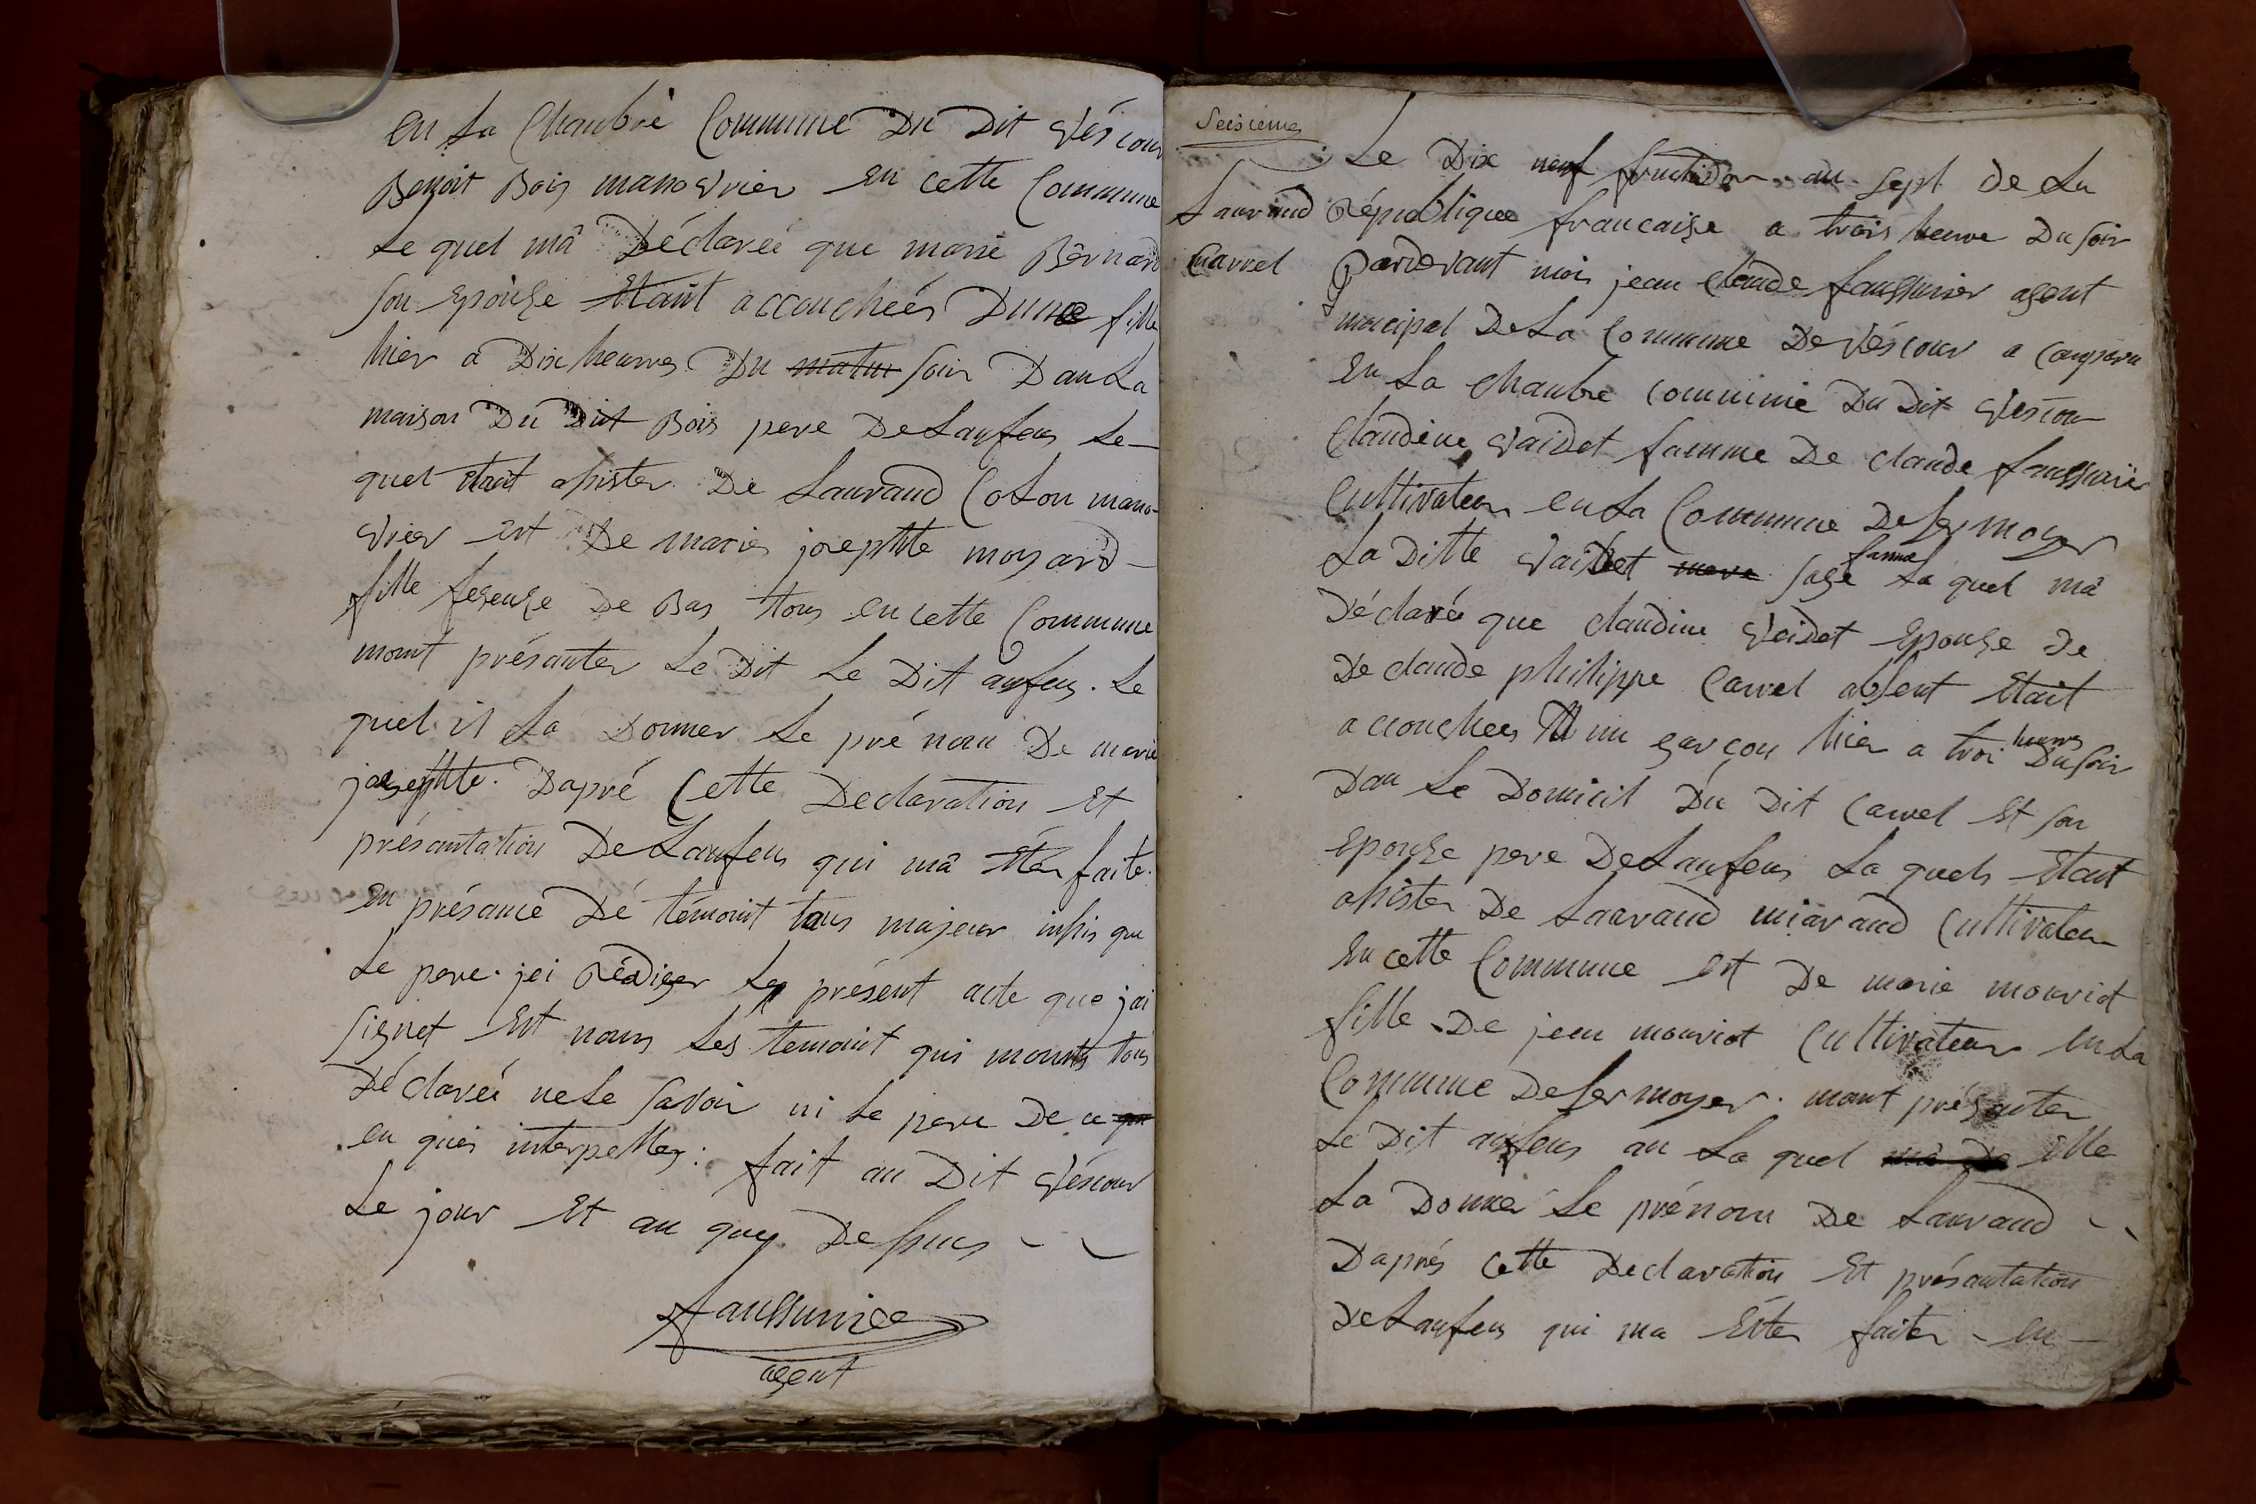 en La Chanbre Commune Du Dit Véscour
Benoit Bois manovrier en cette Commune
Le quel mâ Déclareé que marie Bernard
son epouse Etant accoucheés Dune fille
hier a Dix heures Du matin soir Dan La
maison Du Dit Bois pere De Lanfens Le
quel etant assister De Laurand Colon mano-
vrier est De marie josephte moyard
fille feseuse De Bas tous en cette Commune
mont présanter Le Dit Le Dit anfens. Le
quel il La Donner Le pré nom De marie
josephte. Dapré Cette Declaration Et
présantation De Lanfens qui mâ Eter faite.
en présance Dé témoint tous majeur insis que
Le pere. jei Rédiger Les présent acte que jai
signet Est nons Les temoint qui monts tous
Déclareé ne Le savoir ni Le pere De ce
en quei interpelles: fait au Dit Véscour
Le jour Et an que Dessus
faussurier
agent
Seisieme
Laurand
Carrel
Le Dix neuf fructidor an sept de La
République francaise a trois heure Du soir
Pardevant moi jean Claude faussurier agent
municipal De La Commune De Véscour a Comparu
En La Chanbre commune Du Dit Vescour
Claudine Vaidet famme De claude faussurier
Cultivateur en La Commune De Sermoyer
La Ditte Vaidet mere sage famme La quel mâ
Déclaré que claudine Vaidet Epouse de
De claude philippe Carrel absent Etait
accouchees D un garcon hier a troi heures Du soir
Dan Le Domicil Du Dit Carrel Et son
Epouse pere De Lanfens La quels Etant
assister De Laurand miavaud Cultivateur
En cette Commune est De marie mouriot
fille De jean mouriot Cultivateur en La
Commune De Sermoyer. mont présanter
Le Dit anfens au La quel mâ De Elle
La Donner Le prénom De Laurand
Daprés Cette Declaration Et présantation
De Lanfens qui ma Eter faiter - en -